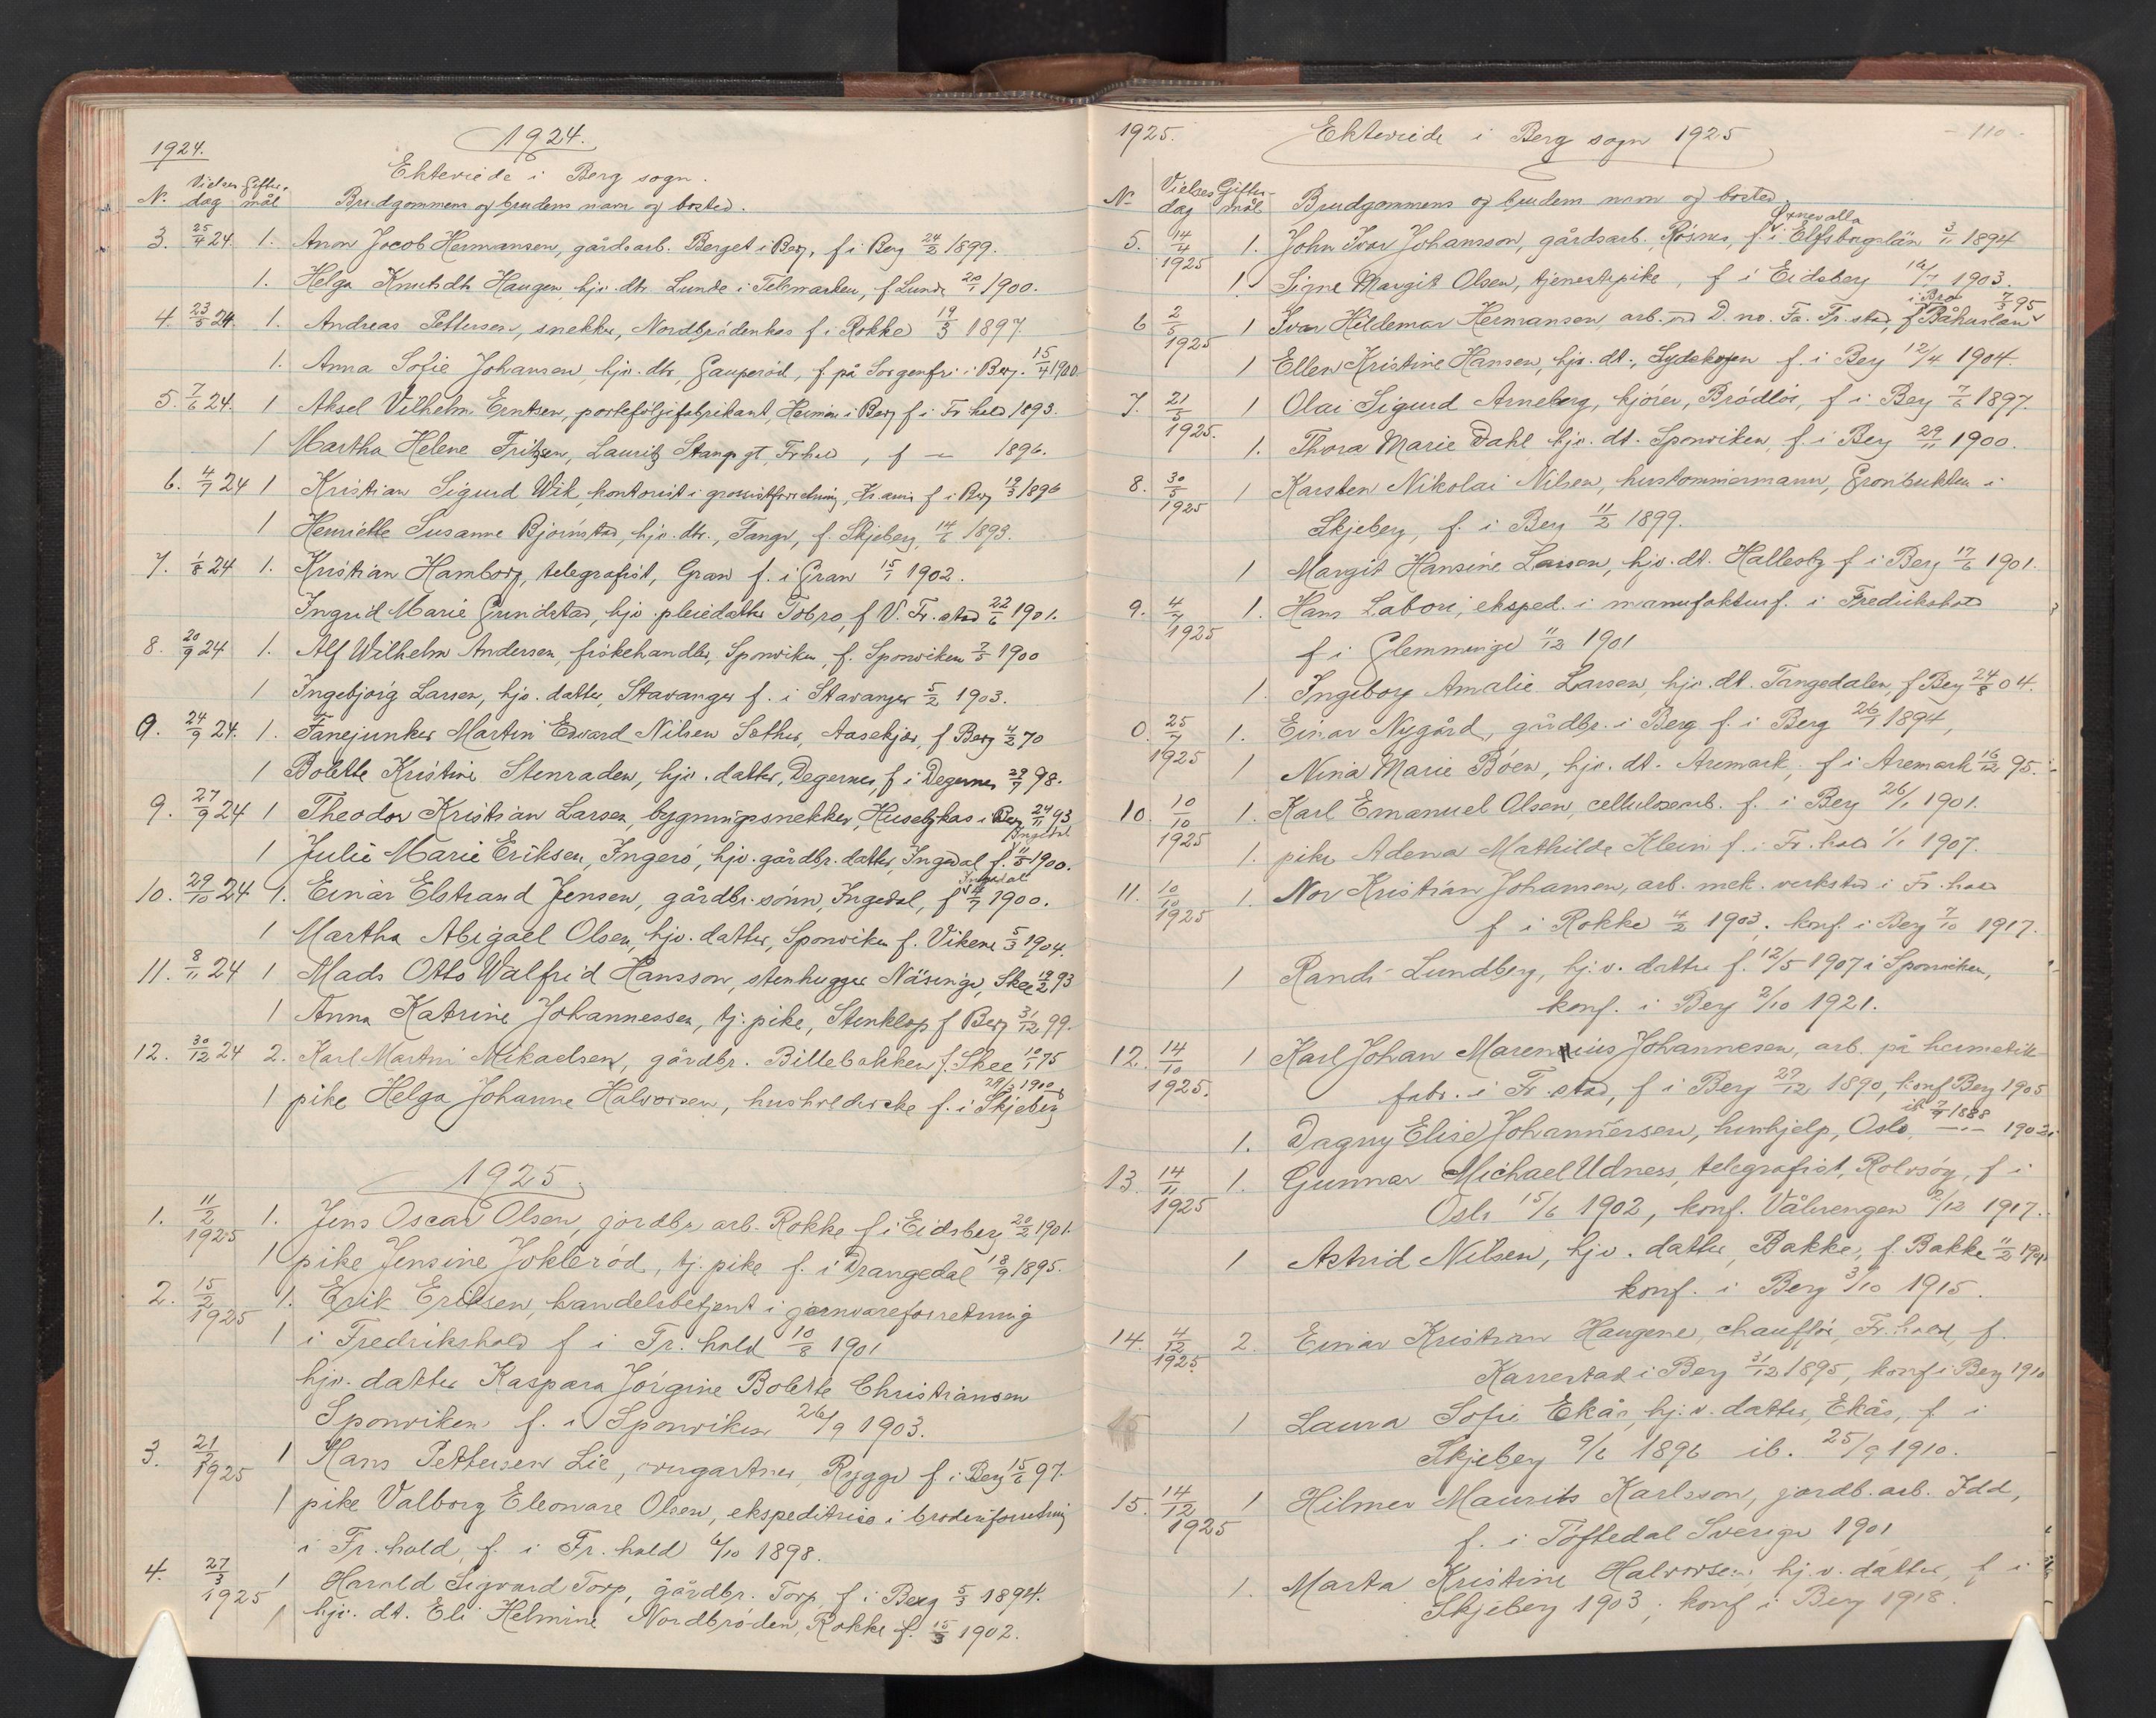 1924.
1924.
Ektevie­de i Berg sogn.
N. Vielses dag Gifter- mål Brudgommens og brudens navn og bosted.
3. 25/4 24 1. Anon Jacob Hermansen, gårdsarb. Berget i Berg, f i Berg 24/2 1899.
1. Helga Knutsdtr Haugen hjv. dtr Lunde i Telemarken, f Lunde 20/1 1900.
4. 23/5 24. 1. Andreas Pettersen, snekker, Nordbrödenkas f i Rokke 19/3 1897
1. Anna Sofie Johansen, hjv. dtr, Gauperöd, f på Sorgenfri i Berg. 15/4 1900
5. 7/6 24. 1 Aksel Vilhelm Erntsen, porteföljefabrikant, i Berg f i Fr hald 1893.
1 Martha Helene Fritzen, Lauritz Stangs gt, Fr hald, f — 1896.
6. 4/7 24 1 Kristian Sigurd Wik, kontorist i grossistforretning, Kr ania f i Berg 19/3 1896
1 Henriette Susanne Bjørnstad, hjv. dtr., Tange, f. Skjeberg, 14/6 1893.
7. 1/8 24 1. Kristian Hamborg, telegrafist, Gran f. i Gran 15/1 1902.
Ingrid Marie Grundstad, hjv. pleiedatter Tobro, f V. Fr. stad 22/6 1901.
8. 20/9 24 1. Alf Wilhelm Andersen, fiskehandler, Sponviken, f. Sponviken 7/5 1900
1 Ingebjörg Larsen, hjv. datter, Stavanger f. i Stavanger 5/2 1903.
9. 24/9 24. 1. Fanejunker Martin Edvard Nilsen Sæther, Aasekjær, f Berg 4/2 70
1 Bolette Kristine Stenraden, hjv. datter, Degernes, f i Degernes 29/7 98.
9. 27/9 24 1 Theodor Kristian Larsen, bygningssnekker, Husebykas i Berg 24/11 93
Ingedal
1 Julie Marie Eriksen, Ingerö, hjv. gårdbr. datter, Ingedal f. 11/5 1900.
Ingedal
10. 29/10 24 1. Einar Elstrand Jensen, gårdbr. sönn, Ingedal, f 1900.
1 Martha Abigael Olsen, hjv. datter, Sponviken f. Vikene 5/3 1904.
11. 8/11 24 1 Mads Otto Walfrid Hansson, stenhugger Näsinge, Skee 19/2 93
1 Anna Katrine Johannessen, tj. pike, Stenklop f Berg 31/12 99.
12. 30/12 24 2. Karl Martin Mikaelsen, gårdbr. Billebakken f. Skee 75
29/3 1900
1 pike Helga Johanne Halvorsen, husholderske f. i Skjeberg
1925.
1. 11/2 1925 1. Jens Oscar Olsen, jordbr. arb. Rokke f i Eidsberg 20/2 1901.
1 pike Jensine Jokleröd, tj. pike f. i Drangedal 18/9 1895.
2. 15/2 1925 1. Erik Eriksen, handelsbetjent i jernvareforretning
1 i Fredrikshald f i Fr. hald 10/8 1901
hjv. datter Kaspara Jörgine Bolette Christiansen
Sponviken f. i Sponviken 26/9 1903.
3. 21/2 1925 1 Hans Pettersen Lie, Rygge f i Berg 15/6 97.
1 pike Valborg Eleonare Olsen, ekspeditrise i broderiforretning
i Fr. hald f. i Fr. hald 6/10 1898.
4. 27/3 1925 1 Harald Sigvard Torp, gårdbr. Torp, f i Berg 5/3 1894.
1 hjv. dt. Eli Helmine Nordbröden, Rokke f. 15/3 1902.
1925. Ektevie­de i Berg sogn 1925 - 110 -
N. Vielses dag Gifter- mål Brudgommens og brudens navn og bosted
5. 14/4 1925 1. John Ivar Johansson, gårdsarb. Rösnes, f. i Elfsborgslän 3/11 1894
1. Signe Margit Olsen, tjenestepike, f i Eidsberg 14/7 1903.
i Bro 7/3 95
6 2/5 1925 1 Ivar Hildemar Hermansen, arb. ved D. no. Fa. Fr. stad, f Båhuslän
1 Ellen Kristine Hansen, hjv. dt., Sydskogen f. i Berg 12/4 1904.
7. 21/5 1925. 1 Olai Sigurd Arneberg, kjörer, Brödlös, f i Berg 7/6 1897.
1. Thora Marie Dahl hjv. dt. Sponviken, f. i Berg 29/11 1900.
8. 30/5 1925 1 Karsten Nikolai Nilsen, hustömmermann, Grönbukten i
Skjeberg, f. i Berg 11/2 1899.
1 Margit Hansine Larsen, hjv. dt. Hallesby f i Berg 17/6 1901.
9. 4/7 1925 1. Hans Labori, eksped. i manufakturf. i Fredrikshald
f i Glemminge 11/12 1901
1. Ingeborg Amalie Larsen, hjv. dt. Tangedalen, f Berg 24/8 04.
0. 25/7 1925 1. Einar Nygård, gårdbr. i Berg f. i Berg 26/7 1894,
1 Nina Marie Böen, hjv. dt. Aremark, f i Aremark 16/12 95.
10. 10/10 1925 1. Karl Emanuel Olsen, cellulosearb. f. i Berg 26/1 1901.
1. pike Adena Mathilde Klein f. i Fr. hald 1/1 1907.
11. 10/10 1925 1. Nor Kristian Johansen, arb. mek. verksted i Fr. hald
f i Rokke 4/2 1903. konf. i Berg 7/10 1917.
1 Randi Lundberg, hj. v. datter f. 12/5 1907 i Sponviken,
konf. i Berg 2/10 1921.
12. 14/10 1925. 1 Karl Johan Marennius Johannesen, arb. på hermetik
fabr. i Fr. stad, f i Berg 29/12 1890, konf Berg 1905
ib 7/9 1888
1. Dagny Elise Johannesen, hushjelp, Oslo, —"— 1902
13. 14/11 1925 1. Gunnar Michael Udness, telegrafist, Rolvsöy, f i
Oslo 15/6 1902, konf. Vålrengen 2/12 1917.
1 Astrid Nilsen, hj v. datter, Bakke, f. Bakke 11/2
konf. i Berg 3/10 1915.
14. 4/12 1925. 2. Einar Kristian Haugene, chaufför, Fr. hald, f.
Karrestad i Berg 31/12 1895, konf i Berg 1910
15 1 Laura Sofie Ekås, hj. v. datter, Ekås, f i
Skjeberg 9/6 1896 ib. 25/9 1910.
15. 14/12 1925 1 Hilmer Maurits Karlsson, jordb. arb. Idd,
f. i Töftedal Sverige 1901
1. Marta Kristine Halvorsen, hj. v. datter, f i
Skjeberg 1903, konf i Berg 1918.